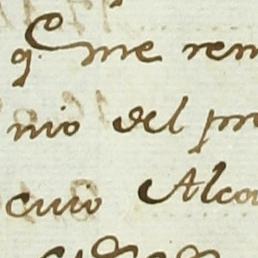 q.e me rem
nio del pre
cuio Alcor